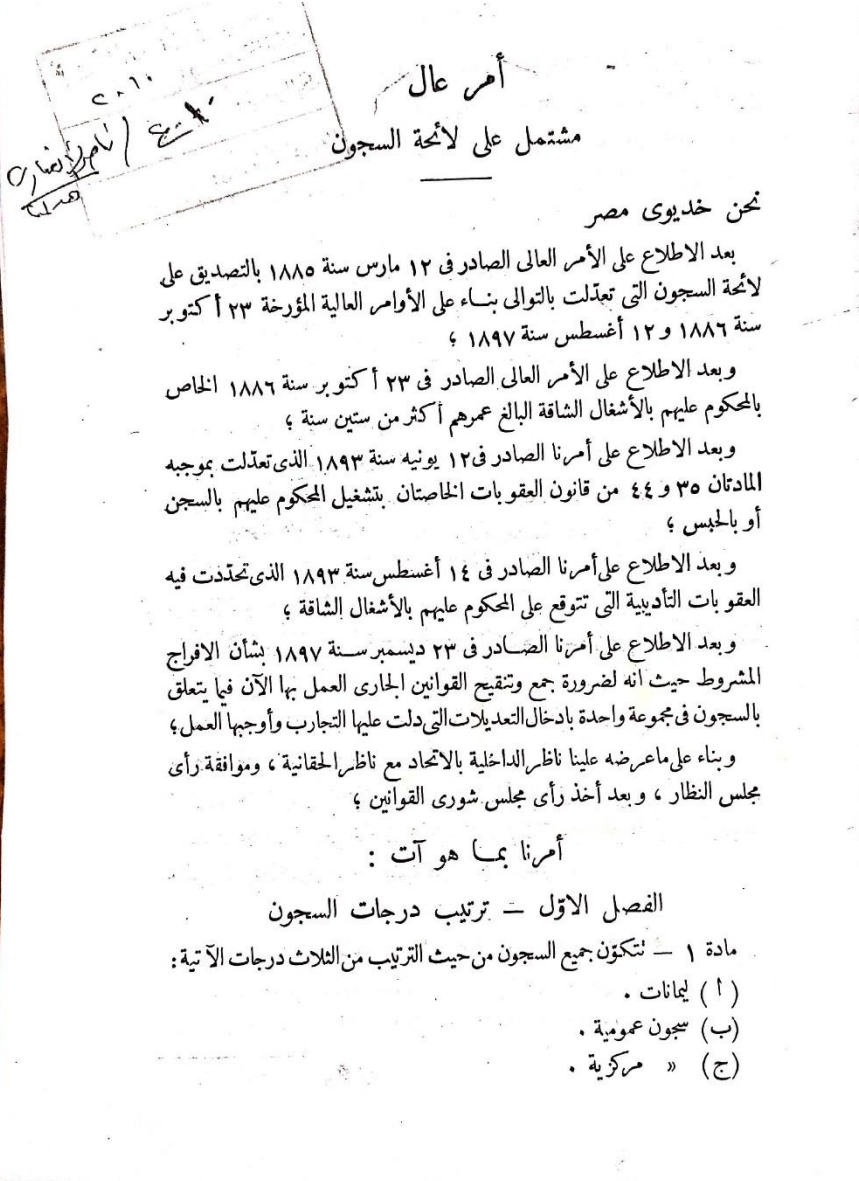 ٢٠١٠
أمر عال
مشتمل على لائحة السجون
نحن خديوى مصر
بعد الاطلاع على الأمر العالى الصادر فى ١٢ مارس سنة ١٨٨٥ بالتصديق على
لائحة السجون التى تعدّلت بالتوالى بناء على الأوامر العالية المؤرخة ٢٣ أكتوبر
سنة ١٨٨٦ و ١٢ أغسطس سنة ١٨٩٧ ؛
وبعد الاطلاع على الأمر العالى الصادر فى ٢٣ أكتوبر سنة ١٨٨٦ الخاص
بالمحكوم عليهم بالأشغال الشاقة البالغ عمرهم أكثر من ستين سنة ؛
وبعد الاطلاع على أمرنا الصادر فى ١٢ يونيه سنة ١٨٩٣ الذى تعدّلت بموجبه
المادتان ٣٥ و ٤٤ من قانون العقوبات الخاصتان بتشغيل المحكوم عليهم بالسجن
أو بالحبس ؛
وبعد الاطلاع على أمرنا الصادر فى ١٤ أغسطس سنة ١٨٩٣ الذى تحدّدت فيه
العقوبات التأديبية التى تتوقع على المحكوم عليهم بالأشغال الشاقة ؛
وبعد الاطلاع على أمرنا الصادر فى ٢٣ ديسمبر سنة ١٨٩٧ بشأن الافراج
المشروط حيث انه لضرورة جمع وتنقيح القوانين الجارى العمل بها الآن فيما يتعلق
بالسجون فى مجموعة واحدة بادخال التعديلات التى دلت عليها التجارب وأوجبها العمل ؛
وبناء على ما عرضه علينا ناظر الداخلية بالاتحاد مع ناظر الحقانية ، وموافقة رأى
مجلس النظار ، وبعد أخذ رأى مجلس شورى القوانين ؛
أمرنا بما هو آت :
الفصل الاوّل — ترتيب درجات السجون
مادة ١ — تتكوّن جميع السجون من حيث الترتيب من الثلاث درجات الآتية :
(أ) ليمانات .
(ب) سجون عمومية .
(ج) » مركزية .